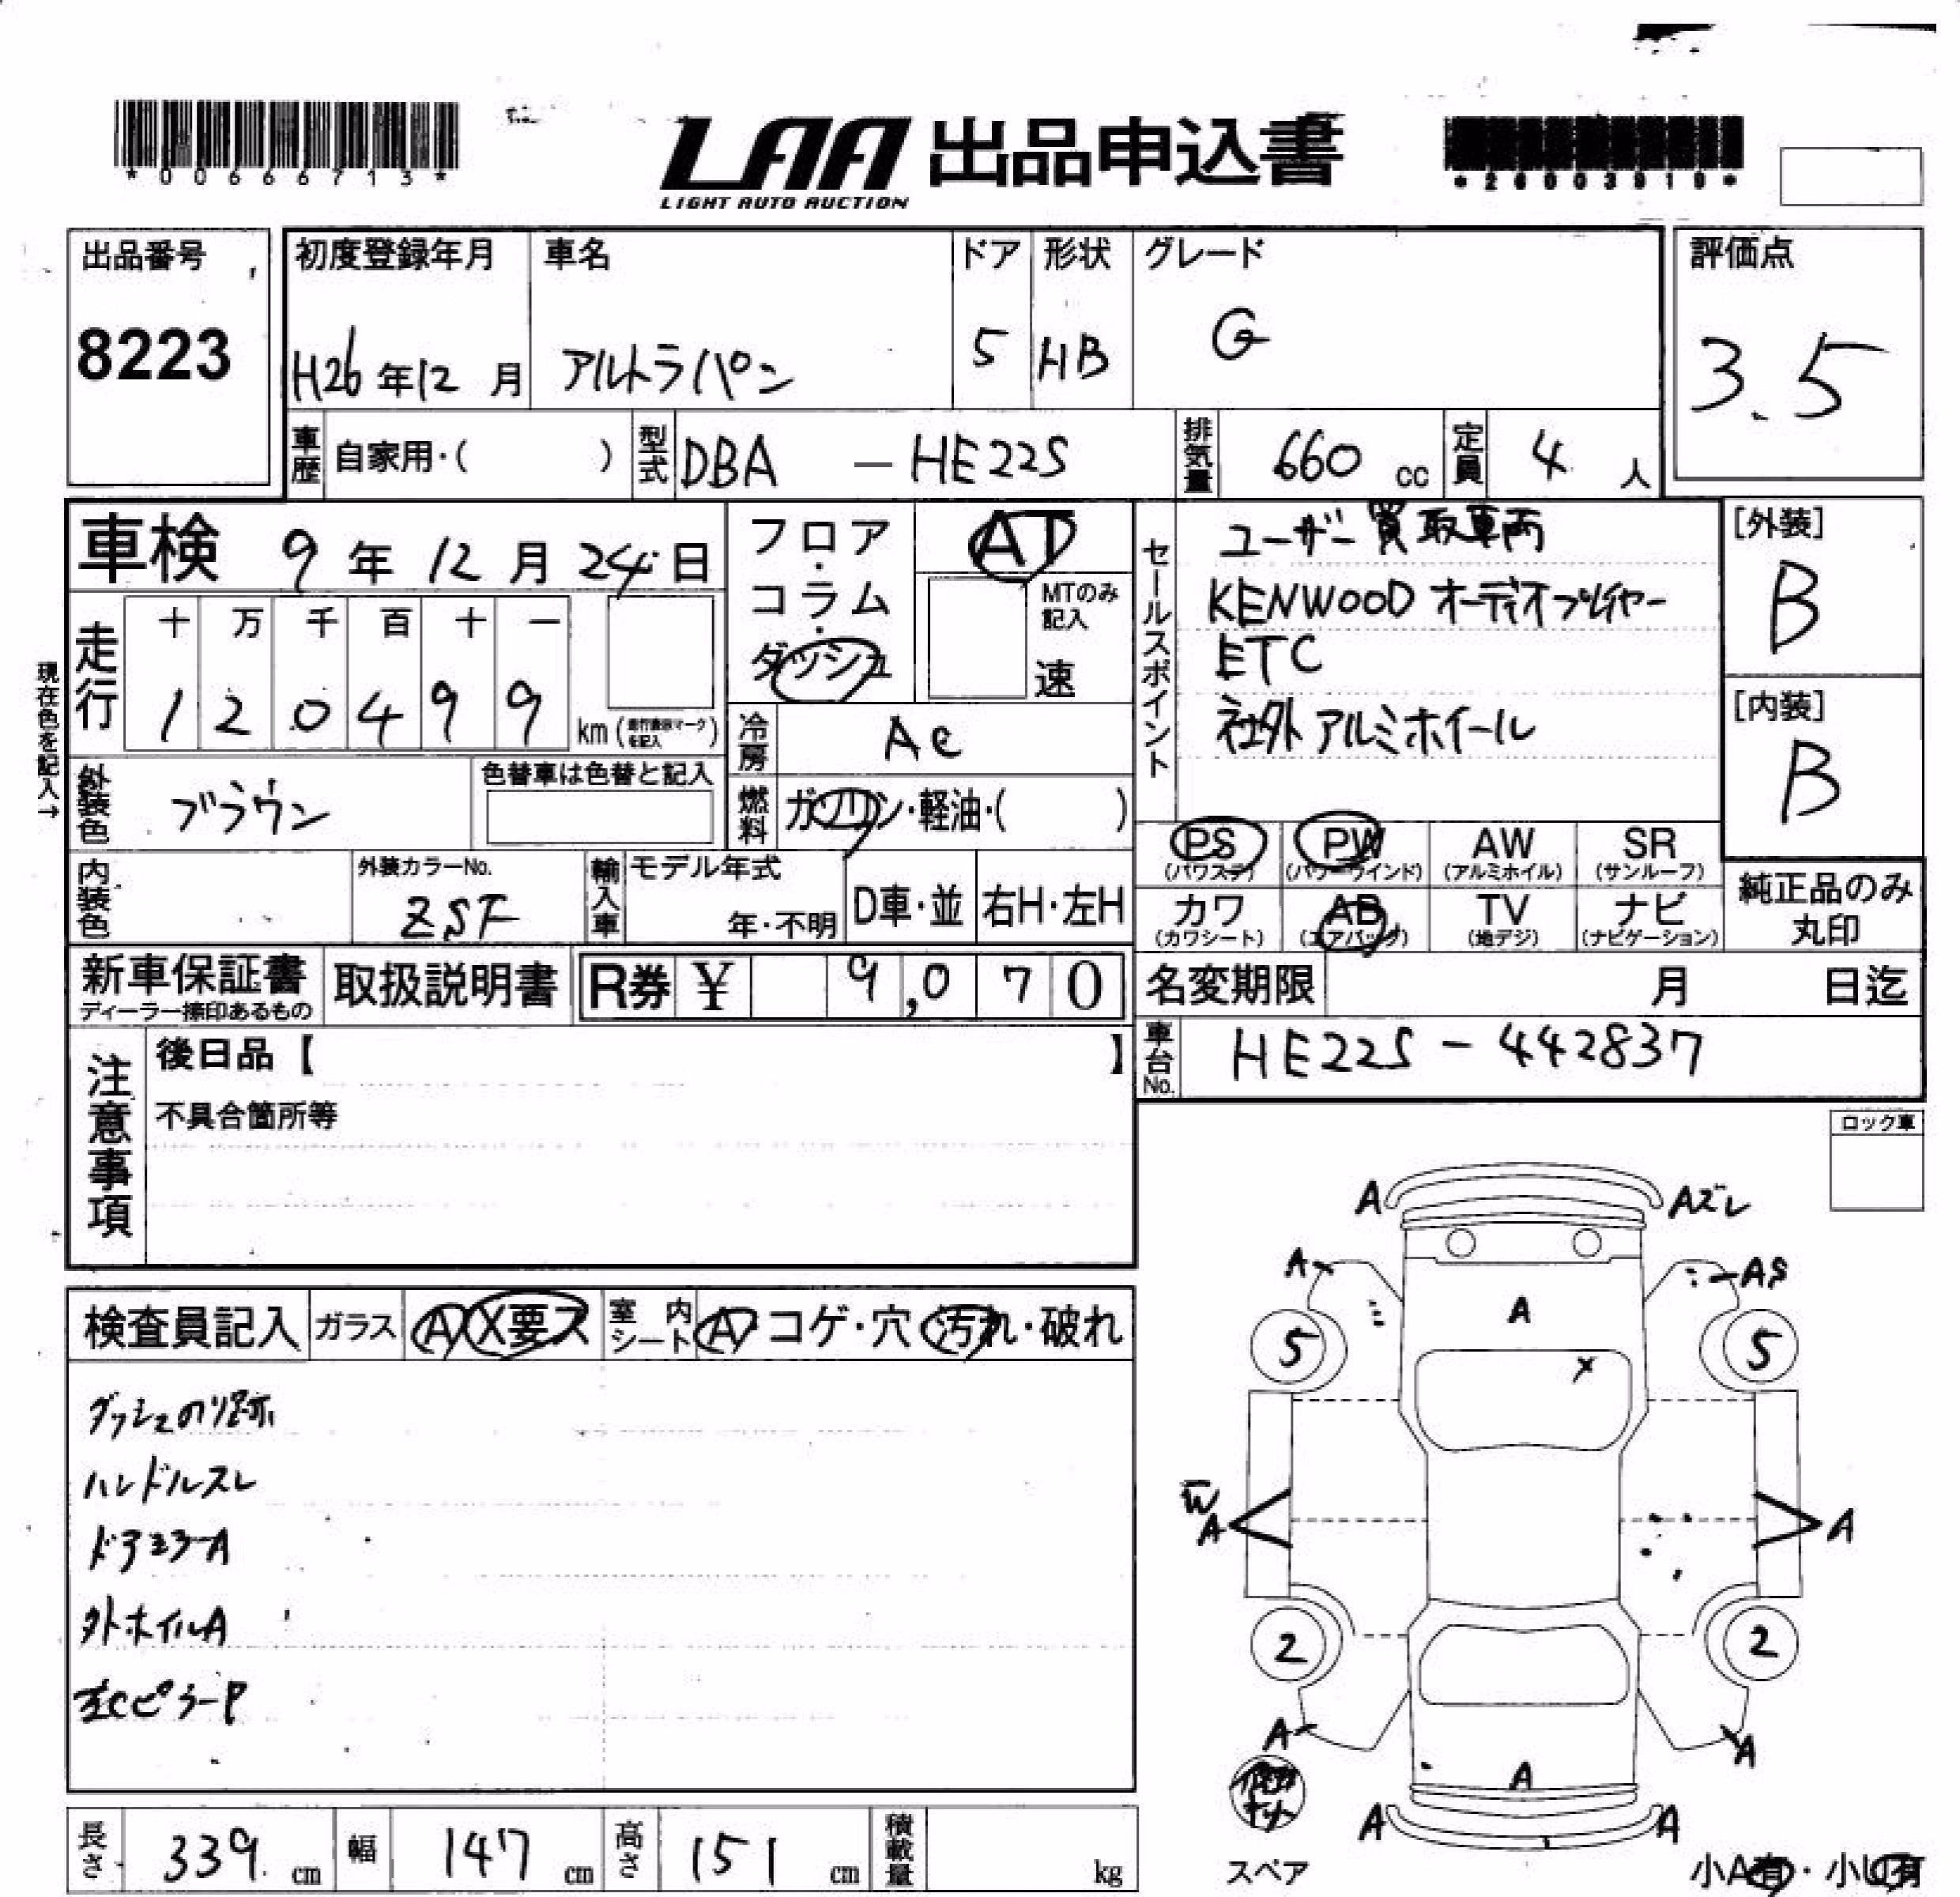 *00666713*
LAA 出品申込書
LIGHT AUTO AUCTION
*26003919*
出品番号
8223
初度登録年月
H26年12月
車名
アルトラパン
ドア
5
形状
HB
グレード
G
評価点
3.5
車歴 自家用・( )
型式 DBA — HE22S
排気量 660 cc
定員 4 人
車検 9年12月24日
フロア・コラム・ダッシュ
AT
MTのみ記入
速
セールスポイント
ユーザー買取車両
KENWOOD オーディオプレイヤー
ETC
社外アルミホイール
[外装]
B
[内装]
B
現在色を記入→
走行
十 万 千 百 十 一
1 2 0 4 9 9
km (走行表示マークを記入)
冷房 AC
外装色 ブラウン
色替車は色替と記入
燃料 ガソリン・軽油・( )
PS (パワステ)
PW (パワーウインド)
AW (アルミホイル)
SR (サンルーフ)
内装色
外装カラーNo.
ZSF
輸入車
モデル年式
年・不明
D車・並
右H・左H
カワ (カワシート)
AB (エアバッグ)
TV (地デジ)
ナビ (ナビゲーション)
純正品のみ丸印
新車保証書
ディーラー捺印あるもの
取扱説明書
R券 ¥ 9,070
名変期限 月 日迄
車台No. HE22S - 442837
注意事項
後日品【 】
不具合箇所等
ロック車
検査員記入
ガラス A X要ス
室内シート A コゲ・穴・汚れ・破れ
ダッシュのリ跡
ハンドルスレ
ドアミラーA
外ホイルA
左CピラーP
A
Aズレ
A
AS
A
5
5
X
W
A
A
2
2
A
A
A
A
A
スペア
小A有・小U有
長さ 339 cm
幅 147 cm
高さ 151 cm
積載量 kg